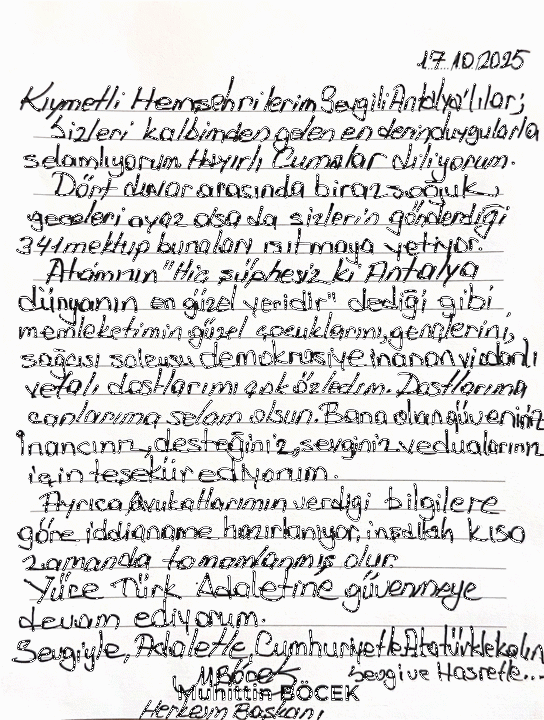 17.10.2025
Kıymetli Hemşehrilerim Sevgili Antalya'lılar;
Sizleri kalbimden gelen en derin duygularla
selamlıyorum Hayırlı Cumalar diliyorum.
Dört duvar arasında biraz soğuk,
geceleri ayaz olsa da sizlerin gönderdiği
341 mektup buraları ısıtmaya yetiyor.
Atamnın "Hiç şüphesiz ki Antalya
dünyanın en güzel yeridir" dediği gibi
memleketimin güzel çocuklarını, gençlerini,
sağcısı solcusu demokrasiye inanan vicdanlı
vefalı dostlarımı çok özledim. Dostlarıma
canlarıma selam olsun. Bana olan güveniniz
İnancınız, desteğiniz, sevginiz ve dualarınız
için teşekür ediyorum.
Ayrıca Avukatlarımın verdiği bilgilere
göre iddianame hazırlanıyor. inşallah kısa
zamanda tamamlanmış olur.
Yüce Türk Adaletine güvenmeye
devam ediyorum.
Sevgiyle, Adaletle, Cumhuriyetle Atatürkle kalın
MBöcek Sevgi ve Hasretle...
Muhittin BÖCEK
Herkesin Başkanı